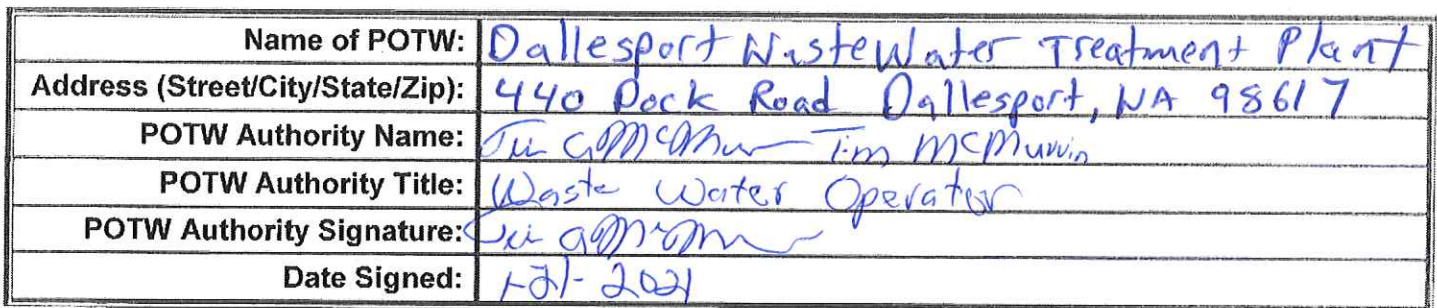 Name of POTW: Dallesport WasteWater Treatment Plant
Address (Street/City/State/Zip): 440 Dock Road Dallesport, WA 98617
POTW Authority Name: Tim McMurrin
POTW Authority Title: Waste Water Operator
POTW Authority Signature:
Date Signed: 1-21-2021